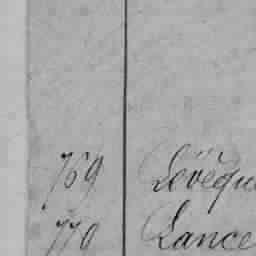 769 Levêque
770 Lance